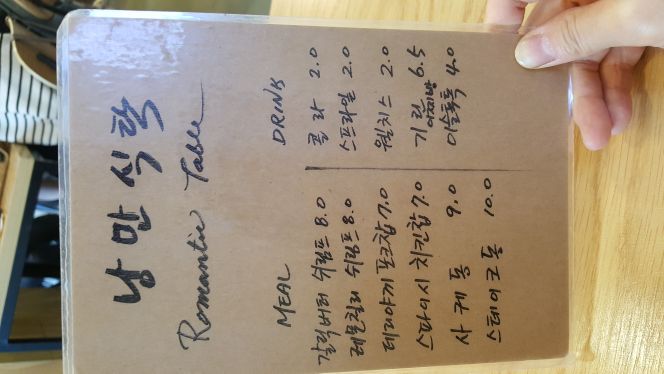 낭만식탁
Romantic Table
MEAL
갈릭버터 쉬림프 8.0
레몬칠리 쉬림프 8.0
데리야끼 포크찹 7.0
스파이시 치킨찹 7.0
사케동 9.0
스테이크동 10.0
DRINK
콜라 2.0
스프라잍 2.0
웰치스 2.0
기린 이찌방 6.5
이슬톡톡 4.0